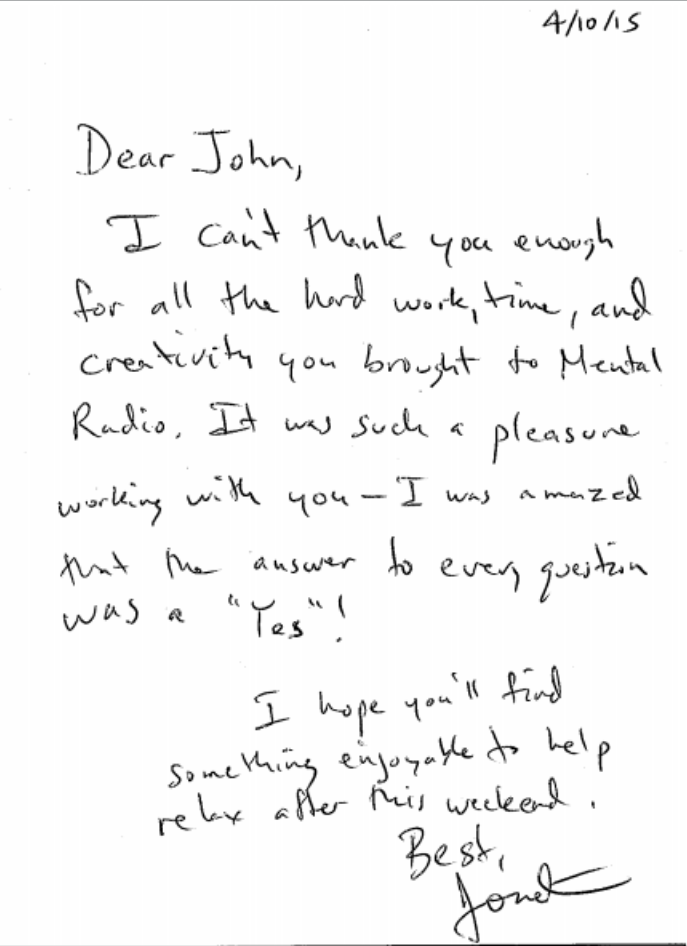 4/10/15
Dear John,
I can't thank you enough
for all the hard work, time, and
creativity you brought to Mental
Radio. It was such a pleasure
working with you – I was amazed
that the answer to every question
was a "Yes"!
I hope you'll find
something enjoyable to help
relax after this weekend.
Best,